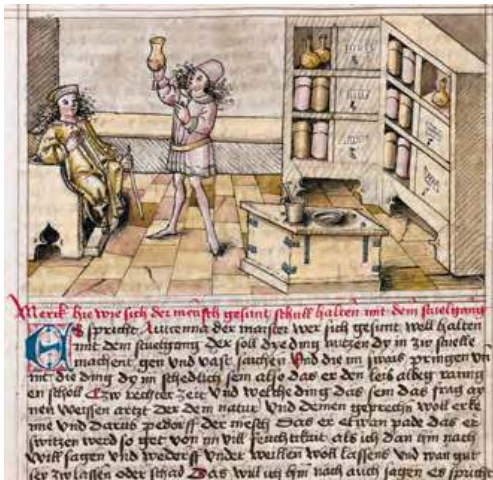 Merck hie wie sich der mensch gesunt schull halten mit dem stuelgang
Es spricht Auicenna der maister wer sich gesunt well halten
mit dem stuelgang der soll dye ding nutzen dy in zw stuelle
machent gen vnd vast sauchen Vnd die im swais pringen vn
mit die ding dy im schedlich sein also das er den leib albeg raynig
en scholl Czw rechter zeit Vnd welche ding das sein das frag ay
nen weissen artzt der dem natur Vnd deinen geprechn woll erke
nne Vnd Darus pedorff der mesch Das er etwan pade das er
switzen werd so get von im vill feuchtikait als ich dan hin nach
will sagen vnd wederff vnder weillen woll lassens vnd wan gut
sey zw lassen oder schad Das will ich hin nach auch sagen Es spricht